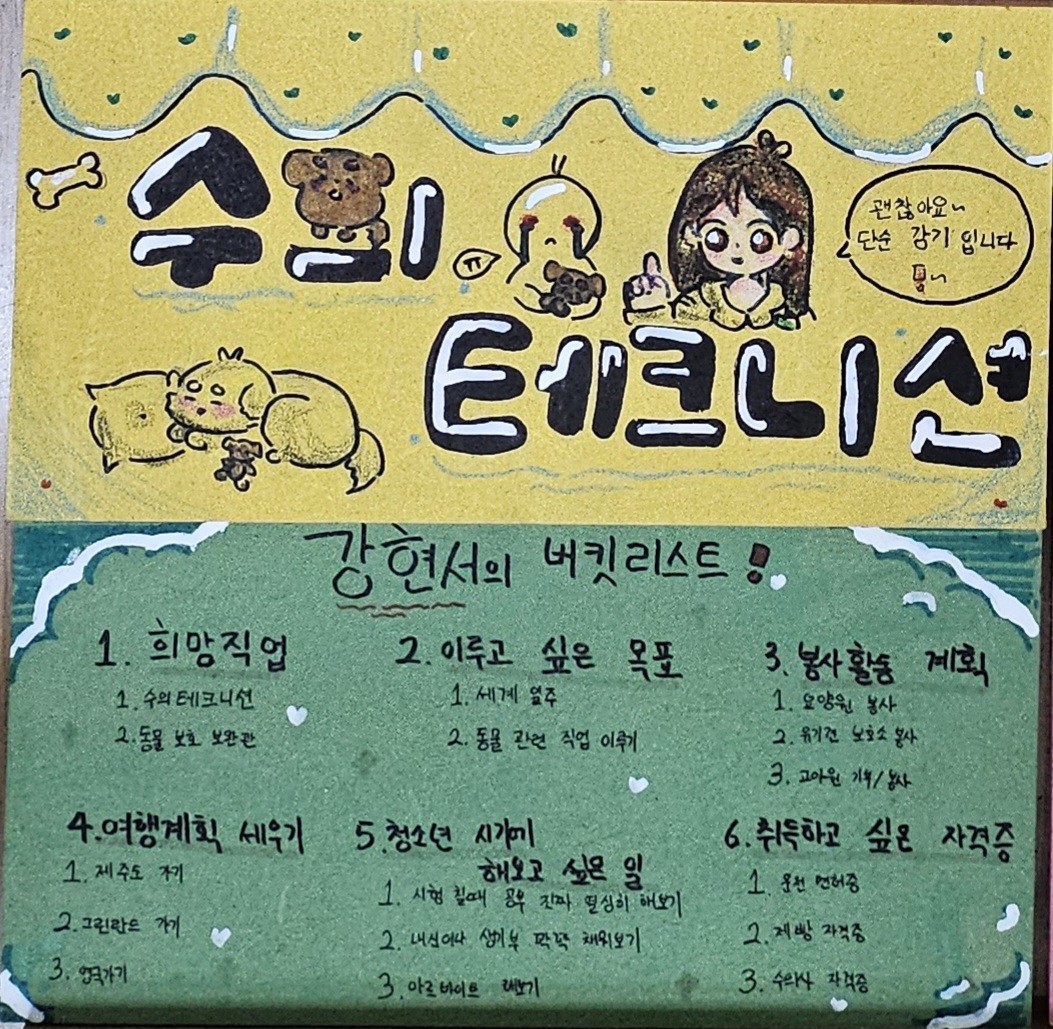 수의
ㅠ
괜찮아요~
단순 감기 입니다
테크니션
강현서의 버킷리스트!
1. 희망직업
1. 수의테크니션
2. 동물 보호 보완관
2. 이루고 싶은 목표
1. 세계 일주
2. 동물 관련 직업 이루기
3. 봉사활동 계획
1. 요양원 봉사
2. 유기견 보호소 봉사
3. 고아원 기부/봉사
4. 여행계획 세우기
1. 제주도 가기
2. 그린란드 가기
3. 영국가기
5. 청소년 시기에
해보고 싶은 일
1. 시험 칠때 공부 진짜 열심히 해보기
2. 내신이나 생기부 꽉꽉 채워보기
3. 아르바이트 해보기
6. 취득하고 싶은 자격증
1. 운전 면허증
2. 제빵 자격증
3. 수의사 자격증